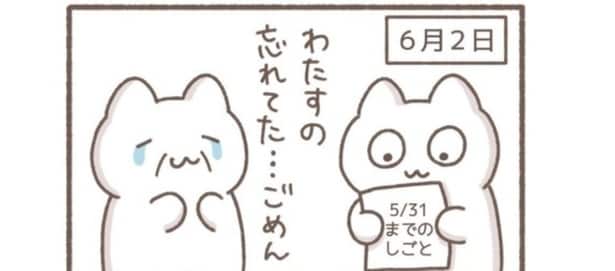 6月2日
わたすの
忘れてた…ごめん
5/31
までの
しごと